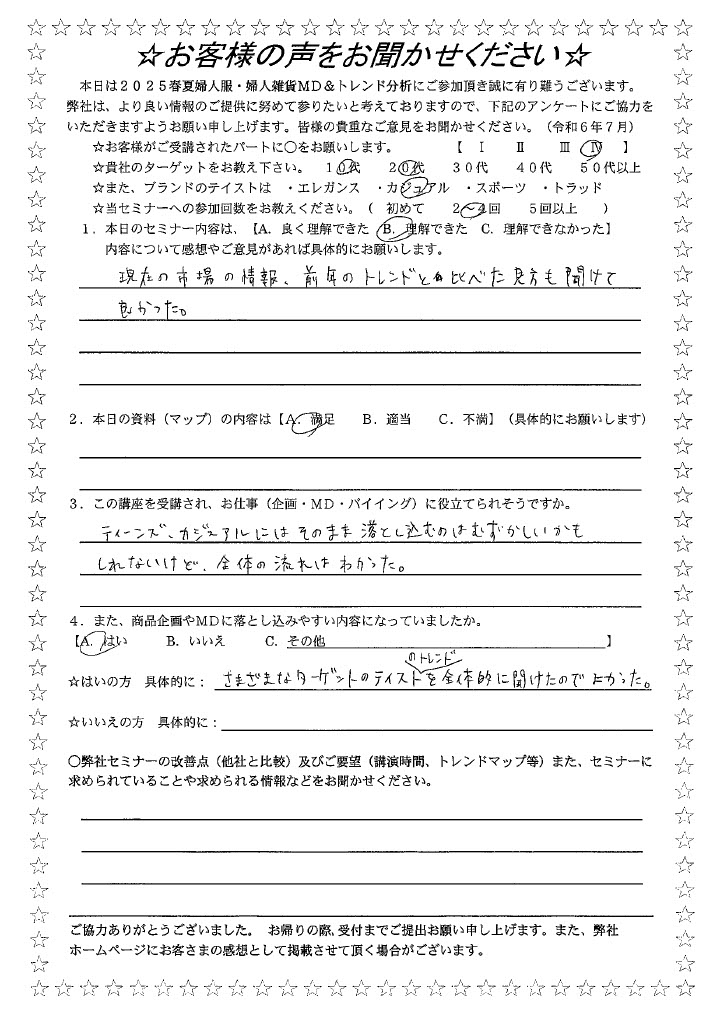 ☆お客様の声をお聞かせください☆
本日は2025春夏婦人服・婦人雑貨MD&トレンド分析にご参加頂き誠に有り難うございます。
弊社は、より良い情報のご提供に努めて参りたいと考えておりますので、下記のアンケートにご協力を
いただきますようお願い申し上げます。皆様の貴重なご意見をお聞かせください。(令和6年7月)
☆お客様がご受講されたパートに○をお願いします。 【 Ⅰ Ⅱ Ⅲ Ⅳ 】
☆貴社のターゲットをお教え下さい。 10代 20代 30代 40代 50代以上
☆また、ブランドのテイストは ・エレガンス ・カジュアル ・スポーツ ・トラッド
☆当セミナーへの参加回数をお教えください。( 初めて 2~4回 5回以上 )
1.本日のセミナー内容は、【A. 良く理解できた B. 理解できた C. 理解できなかった】
内容について感想やご意見があれば具体的にお願いします。
現在の市場の情報、前年のトレンドと比べた見方も聞けて
良かった。
2.本日の資料(マップ)の内容は【A. 満足 B. 適当 C. 不満】(具体的にお願いします)
3.この講座を受講され、お仕事(企画・MD・バイイング)に役立てられそうですか。
ティーンズ、カジュアルにはそのまま落とし込むのはむずかしいかも
しれないけど、全体の流れはわかった。
4.また、商品企画やMDに落とし込みやすい内容になっていましたか。
【A. はい B. いいえ C. その他 】
のトレンド
☆はいの方 具体的に: さまざまなターゲットのテイストを全体的に聞けたのでよかった。
☆いいえの方 具体的に:
○弊社セミナーの改善点(他社と比較)及びご要望(講演時間、トレンドマップ等)また、セミナーに
求められていることや求められる情報などをお聞かせください。
ご協力ありがとうございました。 お帰りの際、受付までご提出お願い申し上げます。また、弊社
ホームページにお客さまの感想として掲載させて頂く場合がございます。